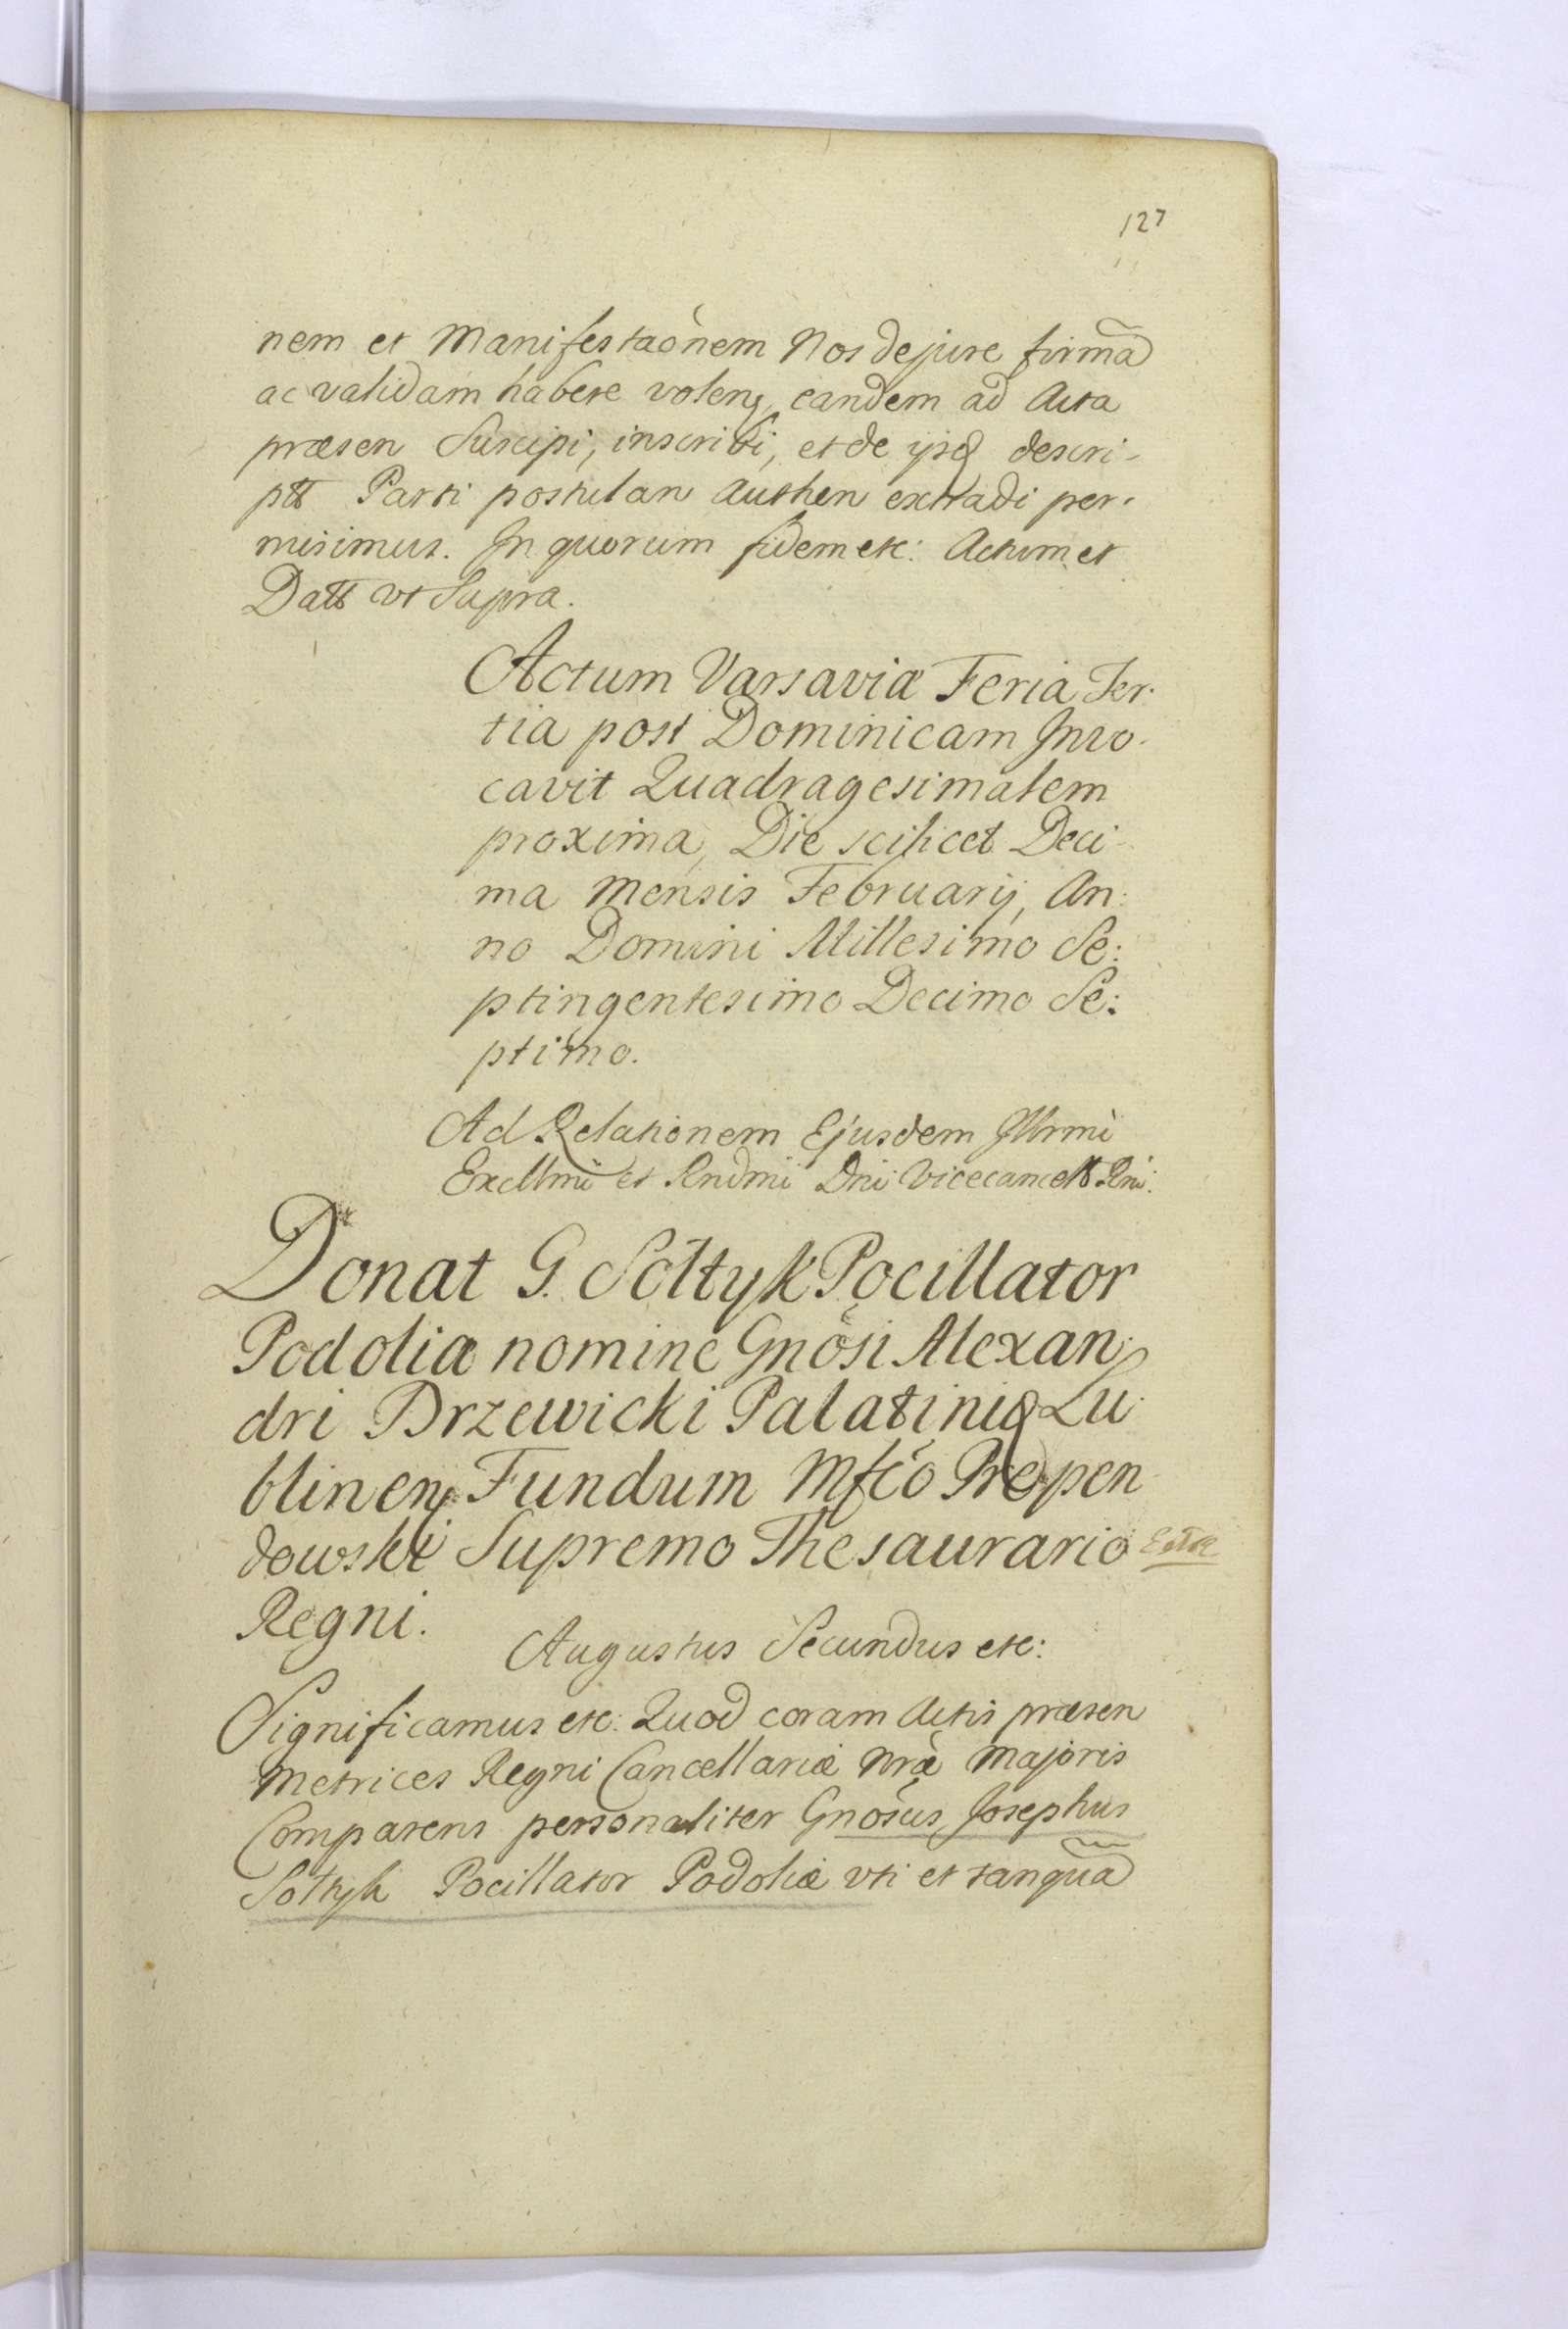 127
nem et Manifestaõnem Nos de jure firmã
ac validam habere volens, eandem ad Acta
præsen Suscipi, inscribi, et de ijsq descri-
ptt Parti postulan Authen extradi per-
misimus. In quorum fidem etc: Actum et
Datt vt Supra.
Actum Varsaviæ Feria Ter-
tia post Dominicam Invo-
cavit Quadragesimalem
proxima, Die scilicet Deci-
ma Mensis Februarij, An:
no Domini Millesimo Se:
ptingentesimo Decimo Se:
ptimo.
Ad Relationem Ejusdem Illrmi
Excllmi et Rndmi Dni Vicecancell Rni:
Donat G. Sołtyk Pocillator
Podoliæ nomine Gnosi Alexan:
dri Drzewicki Palatinid Lu-
blinen Fundum Mfco Prepen-
dowski Supremo Thesaurario
Regni.
Augustus Secundus etc:
Significamus etc: Quod coram Actis præsen
Metrices Regni Cancellariæ Nræ Majoris
Comparens personaliter Gnosus Josephus
Sołtyk Pocillator Podoliæ vti et tanquã